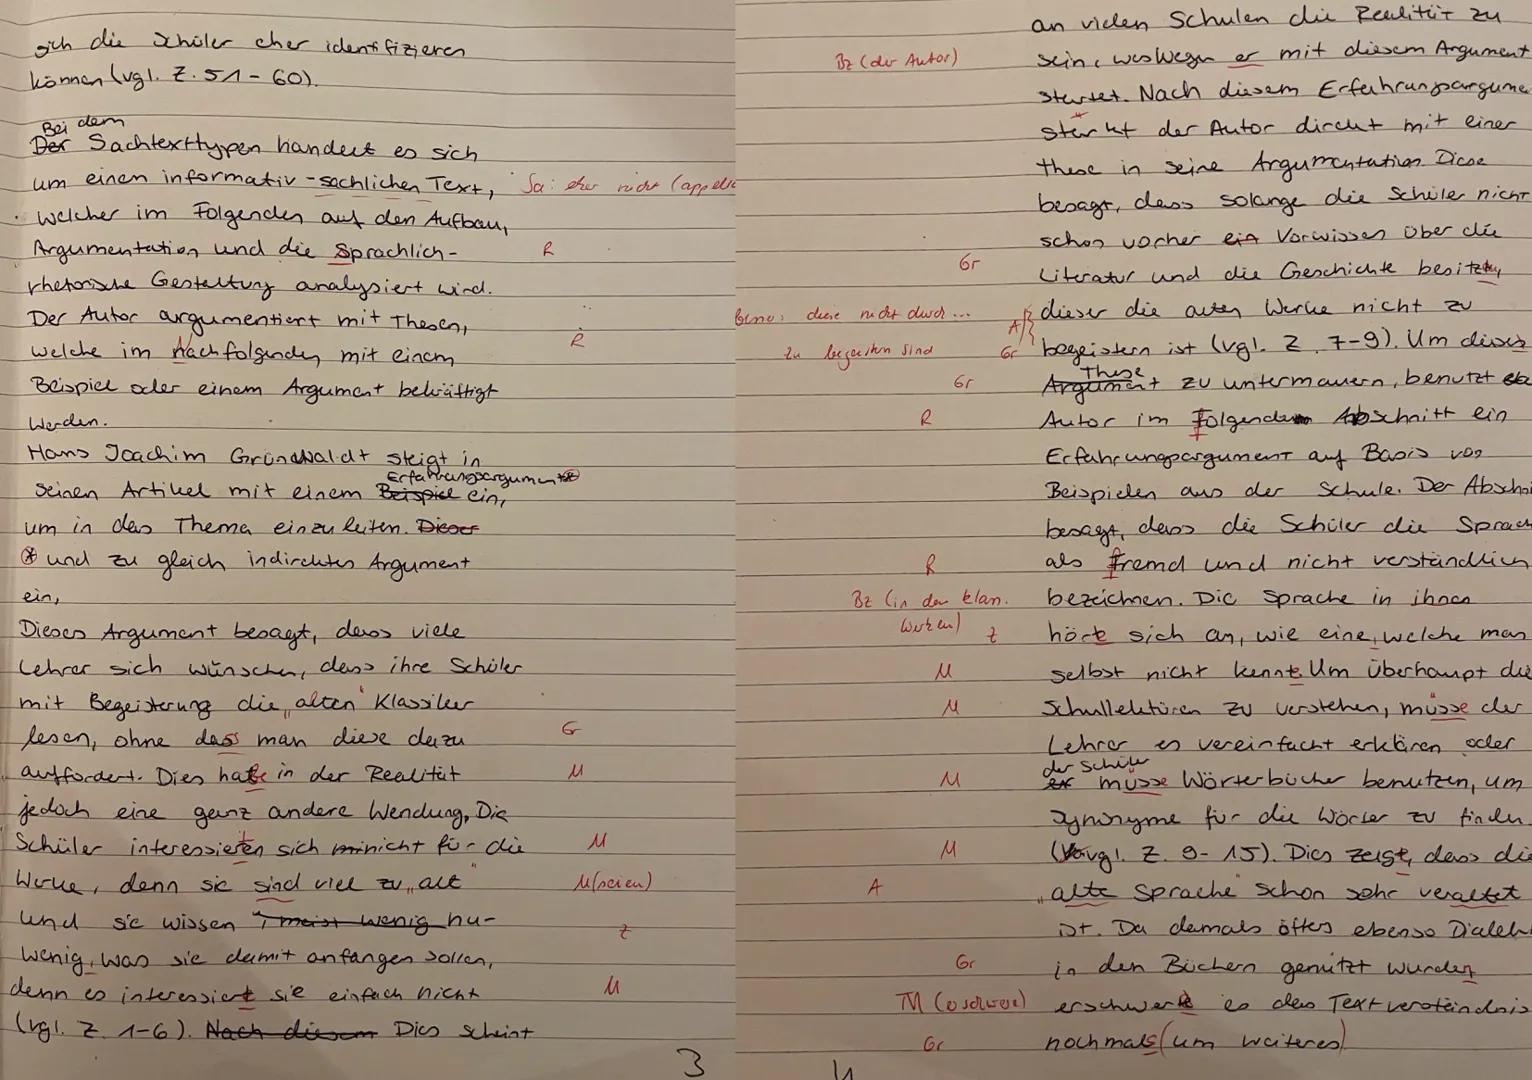 sich die Schüler eher identifizieren
können (vgl. Z. 51-60).
Bei dem
Der Sachtexttypen handelt es sich
um einen informativ-sachlichen Text, Sa: eher nicht
welcher im Folgenden auf den Aufbau,
Argumentation und die Sprachlich- R
rhetorische Gestaltung analysiert wird.
Der Autor argumentiert mit Thesen,
welche im Nachfolgenden mit einem R
Beispiel oder einem Argument bekräftigt
werden.
Hans Joachim Grünwaldt steigt in
Erfahrungsargument
seinen Artikel mit einem Beispiel ein,
um in das Thema einzuleiten. Dieser
und zu gleich indirektes Argument
ein,
Dieses Argument besagt, dass viele
Lehrer sich wünschen, dass ihre Schüler
mit Begeisterung die „alten" Klassiker
lesen, ohne dass man diese dazu G
auffordert. Dies habe in der Realität M
jedoch eine ganz andere Wendung, Die
Schüler interessieren sich nicht für die M
Werke, denn sie sind viel zu „alt" M (seien)
und sie wissen meist wenig nu-
wenig, was sie damit anfangen sollen, Z
denn es interessiert sie einfach nicht M
(vgl. Z. 1-6). Nach diesem Dies scheint
3
an vielen Schulen die Realität zu
Bz (der Autor) sein, weswegen er mit diesem Argument
startet. Nach diesem Erfahrungsargume
startet der Autor direkt mit einer
these in seine Argumentation. Diese
besagt, dass solange die Schüler nicht
schon vorher ein Vorwissen über die
Gr Literatur und die Geschichte besitzen,
diese nicht durch ... A dieser die alten Werke nicht zu
zu begeistern sind Gr begeistern ist (vgl. Z. 7-9). Um dieses
These
Gr Argument zu untermauern, benutzt
R Autor im Folgenden Abschnitt ein
Erfahrungsargument auf Basis von
Beispielen aus der Schule. Der Abschni
besagt, dass die Schüler die Sprach
R als fremd und nicht verständlich
Bz (in den klas. bezeichnen. Die Sprache in ihnen
Werken) Z hört sich an, wie eine, welche man
M selbst nicht kennt. Um Überhaupt die
M Schullektüren zu verstehen, müsse der
Lehrer es vereinfacht erklären oder
der Schüler
M er müsse Wörterbücher benutzen, um
Synonyme für die Wörter zu finden.
M (vgl. Z. 9-15). Dies zeigt, dass die
A „alte Sprache" schon sehr veraltet
ist. Da damals öfters ebenso Dialek
Gr in den Büchern genützt wurden
TM (erschwere) erschwert es das Textverständnis
Gr nochmals (um weiteres)
4